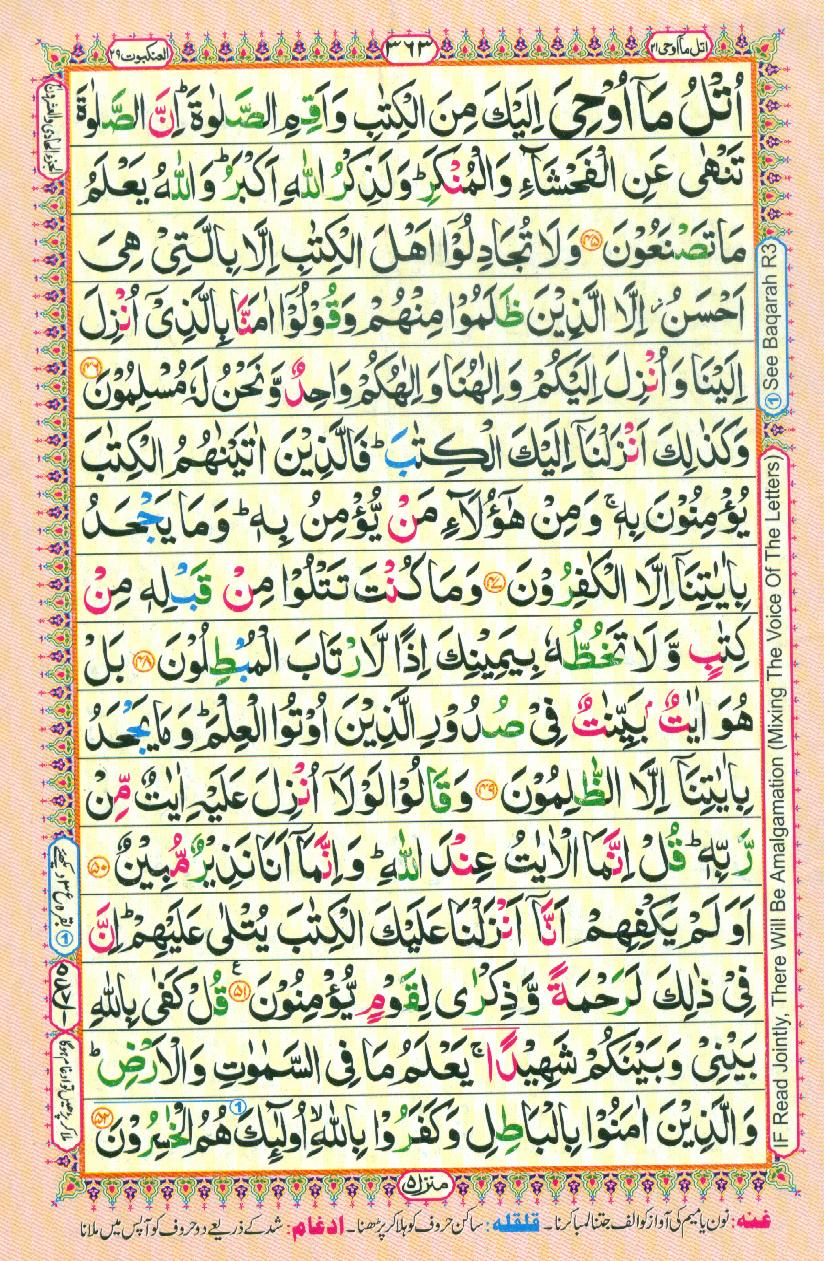 اتل مآ اوحی ۲۱
۳۶۳
العنکبوت ۲۹
اُتْلُ مَاۤ اُوْحِیَ اِلَیْكَ مِنَ الْكِتٰبِ وَاَقِمِ الصَّلٰوةَ ؕ اِنَّ الصَّلٰوةَ
تَنْهٰی عَنِ الْفَحْشَآءِ وَالْمُنْكَرِ ؕ وَلَذِكْرُ اللّٰهِ اَكْبَرُ ؕ وَاللّٰهُ یَعْلَمُ
مَا تَصْنَعُوْنَ ﴿۴۵﴾ وَلَا تُجَادِلُوْۤا اَهْلَ الْكِتٰبِ اِلَّا بِالَّتِیْ هِیَ
اَحْسَنُ ۖ اِلَّا الَّذِیْنَ ظَلَمُوْا مِنْهُمْ وَقُوْلُوْۤا اٰمَنَّا بِالَّذِیْۤ اُنْزِلَ
اِلَیْنَا وَاُنْزِلَ اِلَیْكُمْ وَاِلٰهُنَا وَاِلٰهُكُمْ وَاحِدٌ وَّنَحْنُ لَهٗ مُسْلِمُوْنَ ﴿۴۶﴾
وَكَذٰلِكَ اَنْزَلْنَاۤ اِلَیْكَ الْكِتٰبَ ؕ فَالَّذِیْنَ اٰتَیْنٰهُمُ الْكِتٰبَ
یُؤْمِنُوْنَ بِهٖ ۚ وَمِنْ هٰۤؤُلَآءِ مَنْ یُّؤْمِنُ بِهٖ ؕ وَمَا یَجْحَدُ
بِاٰیٰتِنَاۤ اِلَّا الْكٰفِرُوْنَ ﴿۴۷﴾ وَمَا كُنْتَ تَتْلُوْا مِنْ قَبْلِهٖ مِنْ
كِتٰبٍ وَّلَا تَخُطُّهٗ بِیَمِیْنِكَ اِذًا لَّارْتَابَ الْمُبْطِلُوْنَ ﴿۴۸﴾ بَلْ
هُوَ اٰیٰتٌۢ بَیِّنٰتٌ فِیْ صُدُوْرِ الَّذِیْنَ اُوْتُوا الْعِلْمَ ؕ وَمَا یَجْحَدُ
بِاٰیٰتِنَاۤ اِلَّا الظّٰلِمُوْنَ ﴿۴۹﴾ وَقَالُوْا لَوْلَاۤ اُنْزِلَ عَلَیْهِ اٰیٰتٌ مِّنْ
رَّبِّهٖ ؕ قُلْ اِنَّمَا الْاٰیٰتُ عِنْدَ اللّٰهِ ؕ وَاِنَّمَاۤ اَنَا نَذِیْرٌ مُّبِیْنٌ ﴿۵۰﴾
اَوَلَمْ یَكْفِهِمْ اَنَّاۤ اَنْزَلْنَا عَلَیْكَ الْكِتٰبَ یُتْلٰی عَلَیْهِمْ ؕ اِنَّ
فِیْ ذٰلِكَ لَرَحْمَةً وَّذِكْرٰی لِقَوْمٍ یُّؤْمِنُوْنَ ﴿۵۱﴾ ع قُلْ كَفٰی بِاللّٰهِ
بَیْنِیْ وَبَیْنَكُمْ شَهِیْدًا ۚ یَعْلَمُ مَا فِی السَّمٰوٰتِ وَالْاَرْضِ ؕ
وَالَّذِیْنَ اٰمَنُوْا بِالْبَاطِلِ وَكَفَرُوْا بِاللّٰهِ ۙ اُولٰٓئِكَ هُمُ الْخٰسِرُوْنَ ﴿۵۲﴾
منزل ۵
غنه: نون یا میم کی آواز کو الف جتنا لمبا کرنا۔ قلقله: ساکن حروف کو ہلا کر پڑھنا۔ ادغام: شد کے ذریعے دو حروف کو آپس میں ملانا
① See Baqarah R3
IF Read Jointly, There Will Be Amalgamation (Mixing The Voice Of The Letters)
الجزء الحادی والعشرون
① بقره ع۳ دیکھئے